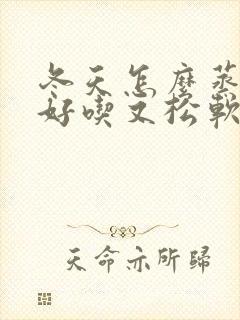 冬天怎麼蒸
好喫又松軟
天命亦所歸